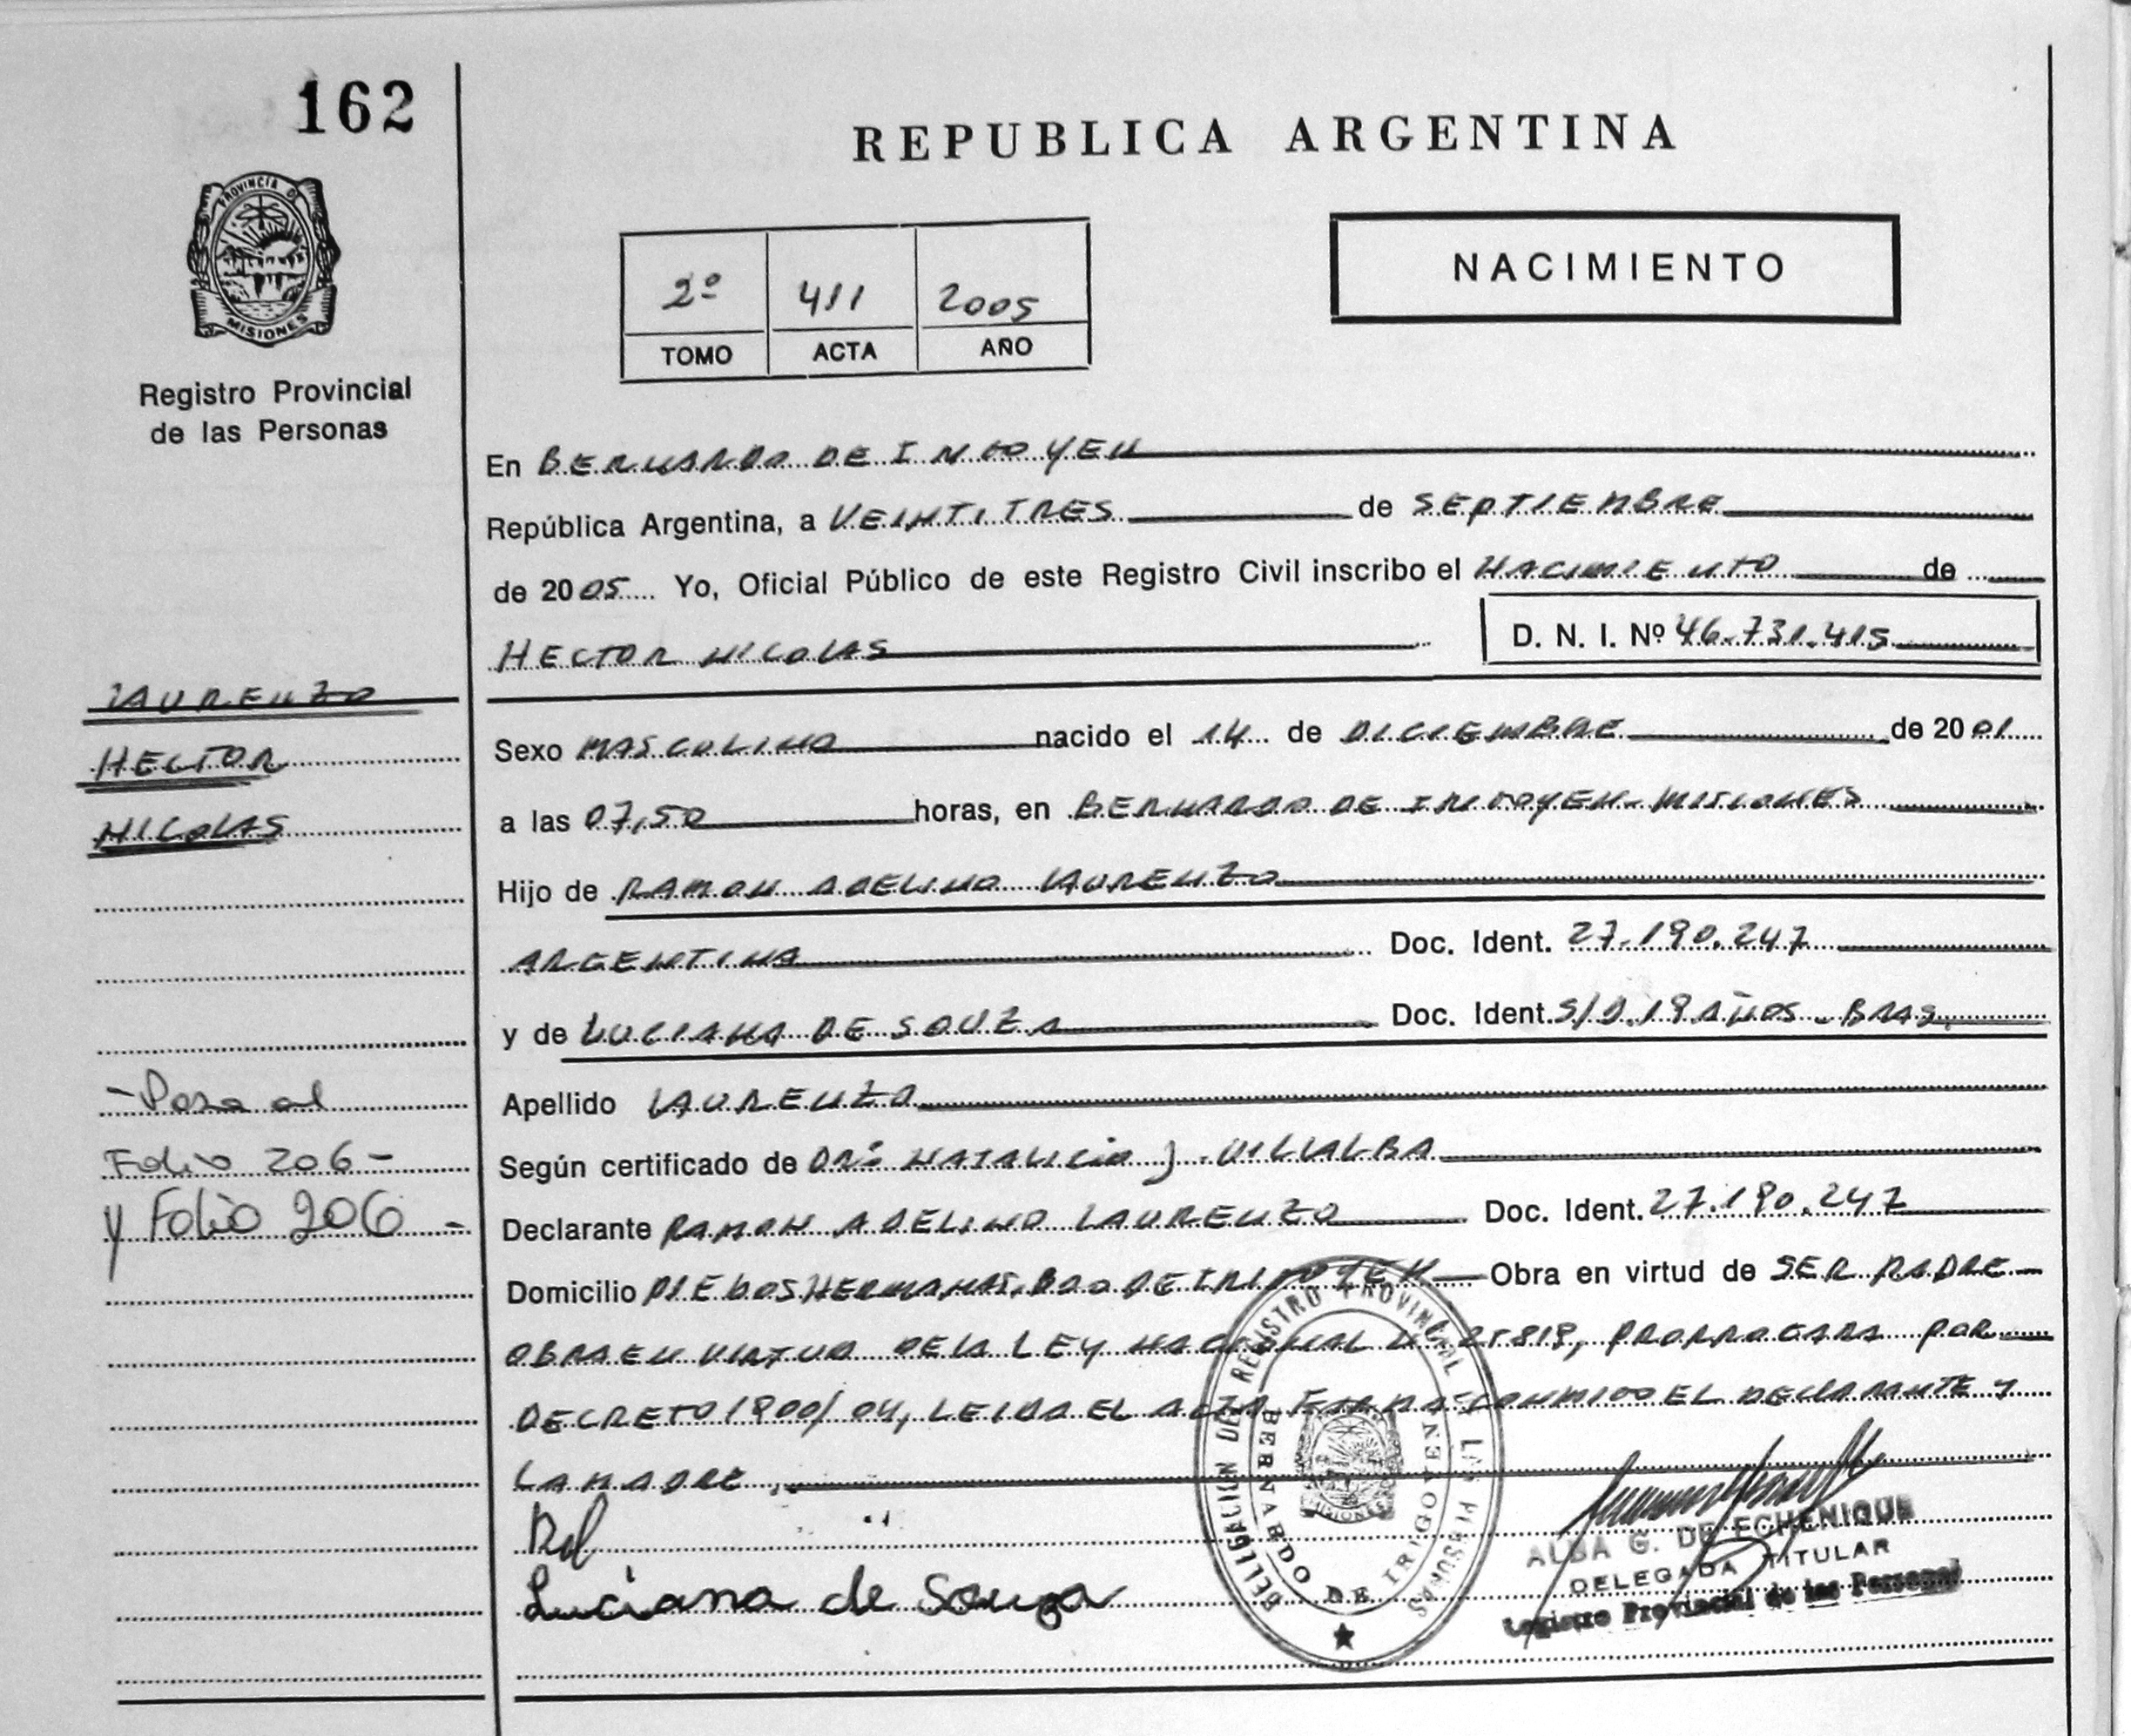 162
PROVINCIA DE
MISIONES
Registro Provincial
de las Personas
REPUBLICA ARGENTINA
NACIMIENTO
2º 411 2005
TOMO ACTA AÑO
En BERNARDO DE IRIGOYEN
República Argentina, a VEINTITRES de SEPTIEMBRE
de 2005 Yo, Oficial Público de este Registro Civil inscribo el NACIMIENTO de
HECTOR NICOLAS D. N. I. Nº 46.731.415
LAURENZO
HECTOR
NICOLAS
Sexo MASCULINO nacido el 14 de DICIEMBRE de 2001
a las 07,50 horas, en BERNARDO DE IRIGOYEN - MISIONES
Hijo de RAMON ADELINO LAURENZO
ARGENTINA Doc. Ident. 27.190.247
y de LUCIANA DE SOUZA Doc. Ident. S/D. 19 AÑOS - BRAS.
Apellido LAURENZO
Según certificado de DRª NATALICIA J. VILLALBA
Declarante RAMON ADELINO LAURENZO Doc. Ident. 27.190.247
Domicilio DOS HERMANAS, BDO DE IRIGOYEN Obra en virtud de SER PADRE
OBRA EN VIRTUD DE LA LEY NACIONAL Nº 25819, PRORROGADA POR
DECRETO 1800/04, LEIDA EL ACTA FIRMA CONMIGO EL DECLARANTE Y
LA MADRE
- Pasa al
Folio 206 -
y Folio 206 -
Luciana de Souza
DELEGACION DEL REGISTRO PROVINCIAL DE LAS PERSONAS
BERNARDO DE IRIGOYEN
MISIONES
ALBA G. DE ECHENIQUE
DELEGADA TITULAR
Registro Provincial de las Personas